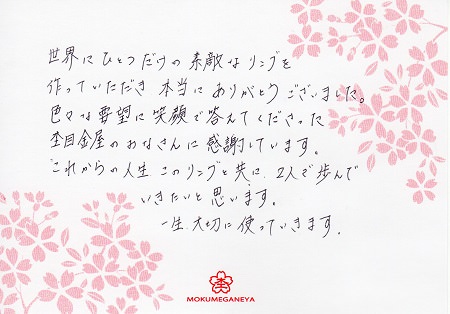 世界にひとつだけの素敵なリングを
作っていただき 本当にありがとうございました。
色々な要望に笑顔で答えてくださった
杢目金屋のみなさんに感謝しています。
これからの人生 このリングと共に、2人で歩んで
いきたいと思います。
一生、大切に使っていきます。
MOKUMEGANEYA